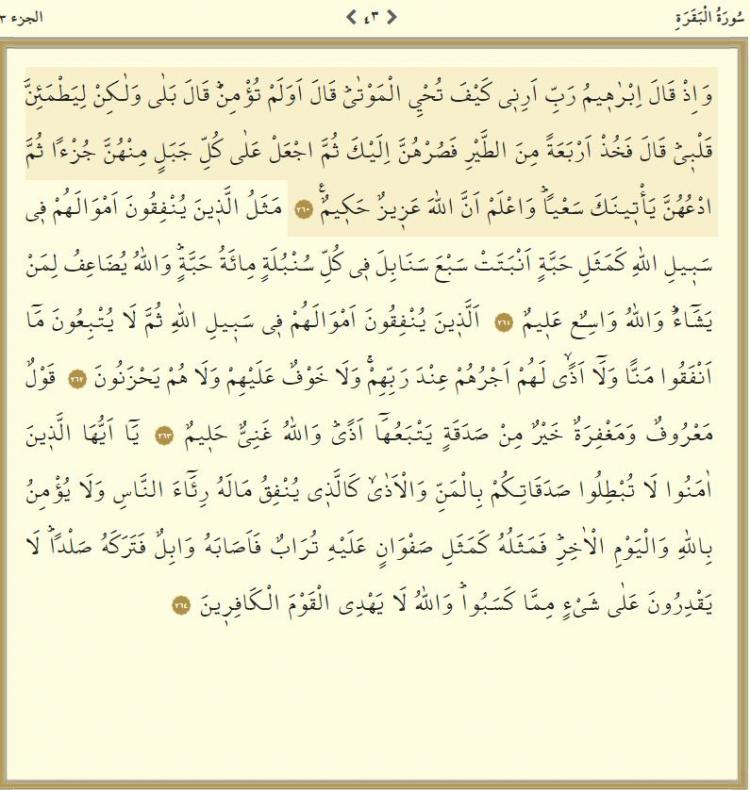 سُورَةُ الْبَقَرَةِ ٤٣ الجزء ٣
وَاِذْ قَالَ اِبْرٰه۪يمُ رَبِّ اَرِن۪ي كَيْفَ تُحْيِ الْمَوْتٰىۜ قَالَ اَوَلَمْ تُؤْمِنْۜ قَالَ بَلٰى وَلٰكِنْ لِيَطْمَئِنَّ
قَلْب۪يۜ قَالَ فَخُذْ اَرْبَعَةً مِنَ الطَّيْرِ فَصُرْهُنَّ اِلَيْكَ ثُمَّ اجْعَلْ عَلٰى كُلِّ جَبَلٍ مِنْهُنَّ جُزْءًا ثُمَّ
ادْعُهُنَّ يَأْت۪ينَكَ سَعْيًاۜ وَاعْلَمْ اَنَّ اللّٰهَ عَز۪يزٌ حَك۪يمٌ۟ ٢٦٠ مَثَلُ الَّذ۪ينَ يُنْفِقُونَ اَمْوَالَهُمْ ف۪ي
سَب۪يلِ اللّٰهِ كَمَثَلِ حَبَّةٍ اَنْبَتَتْ سَبْعَ سَنَابِلَ ف۪ي كُلِّ سُنْبُلَةٍ مِائَةُ حَبَّةٍۜ وَاللّٰهُ يُضَاعِفُ لِمَنْ
يَشَٓاءُۜ وَاللّٰهُ وَاسِعٌ عَل۪يمٌ ٢٦١ اَلَّذ۪ينَ يُنْفِقُونَ اَمْوَالَهُمْ ف۪ي سَب۪يلِ اللّٰهِ ثُمَّ لَا يُتْبِعُونَ مَٓا
اَنْفَقُوا مَنًّا وَلَٓا اَذًىۙ لَهُمْ اَجْرُهُمْ عِنْدَ رَبِّهِمْۚ وَلَا خَوْفٌ عَلَيْهِمْ وَلَا هُمْ يَحْزَنُونَ ٢٦٢ قَوْلٌ
مَعْرُوفٌ وَمَغْفِرَةٌ خَيْرٌ مِنْ صَدَقَةٍ يَتْبَعُهَٓا اَذًىۜ وَاللّٰهُ غَنِيٌّ حَل۪يمٌ ٢٦٣ يَٓا اَيُّهَا الَّذ۪ينَ
اٰمَنُوا لَا تُبْطِلُوا صَدَقَاتِكُمْ بِالْمَنِّ وَالْاَذٰىۙ كَالَّذ۪ي يُنْفِقُ مَالَهُ رِئَٓاءَ النَّاسِ وَلَا يُؤْمِنُ
بِاللّٰهِ وَالْيَوْمِ الْاٰخِرِۜ فَمَثَلُهُ كَمَثَلِ صَفْوَانٍ عَلَيْهِ تُرَابٌ فَاَصَابَهُ وَابِلٌ فَتَرَكَهُ صَلْدًاۜ لَا
يَقْدِرُونَ عَلٰى شَيْءٍ مِمَّا كَسَبُواۜ وَاللّٰهُ لَا يَهْدِي الْقَوْمَ الْكَافِر۪ينَ ٢٦٤